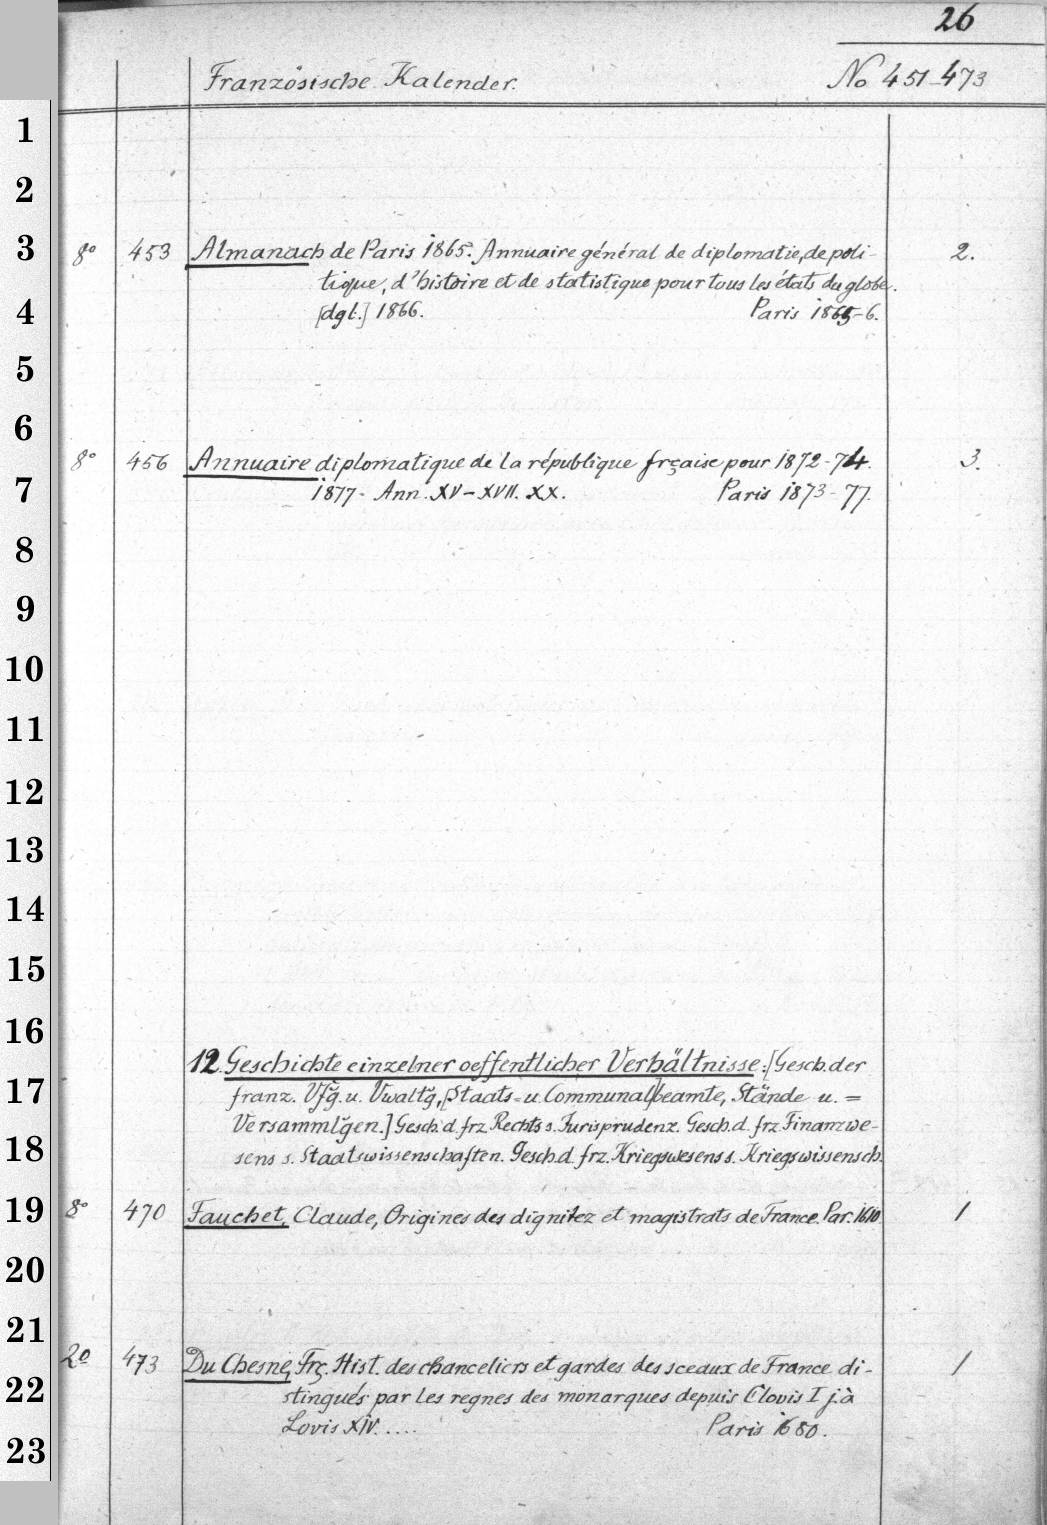 26
Französische Kalender. No 451-473
1
2
3 8° 453 Almanach de Paris 1865. Annuaire général de diplomatie, de poli- 2.
tique, d'histoire et de statistique pour tous les états du globe.
4 [dgl.] 1866. Paris 1865-6.
5
6
8° 456 Annuaire diplomatique de la république frçaise pour 1872-74. 3.
7 1877- Ann. XV-XVII. XX. Paris 1873-77.
8
9
10
11
12
13
14
15
16
12. Geschichte einzelner oeffentlicher Verhältnisse: [Gesch. der
17 franz. Vfg̃. u. Vwaltg̃, [Staats- u. Communal]beamte, Stände u. =
Versammlg̃en.] Gesch. d. frz. Rechts s. Jurisprudenz. Gesch. d. frz. Finanzwe-
18 sens s. Staatswissenschaften. Gesch. d. frz. Kriegswesens s. Kriegswissensch.
19 8° 470 Fauchet, Claude, Origines des dignitez et magistrats de France. Par. 1610. 1
20
21
2° 473 Du Chesne, Frç. Hist. des chanceliers et gardes des sceaux de France di- 1
22 stingués par les regnes des monarques depuis Clovis I j. à
23 Lovis XIV. .... Paris 1680.